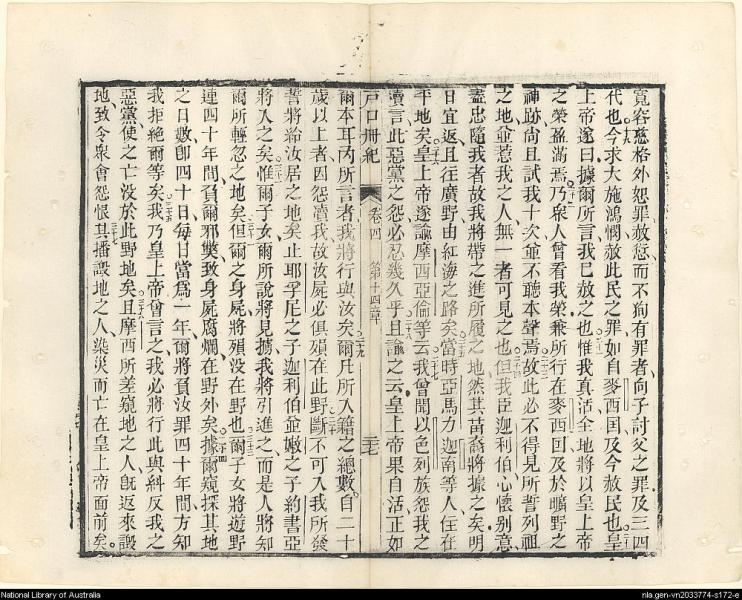 寬容慈格外恕罪赦愆而不狥有罪者向子討父之罪及三四
代也今求大施鴻憫赦此民之罪如自麥西囯及今赦民也皇
上帝遂曰據爾所言我已赦之也惟我真活全地將以皇上帝
之榮盈滿焉乃衆人曾看我榮兼所行在麥西囯及於曠野之
神跡尚且試我十次並不聽本聲焉故此必不得見所誓列祖
之地並惹我之人無一者可見之也但我臣迦利伯心懷别意
盡忠隨我者故我將帶之進所履之地然其苗裔將據之矣明
日宜返且往廣野由紅海之路矣當時亞馬力迦南等人住在
平地矣皇上帝遂諭摩西亞倫等云我曾聞以色列族怨我之
瀆言此惡黨之怨必忍幾久乎且諭之云皇上帝果自活正如
戸口册紀 卷四 第十四章 二七
爾本耳丙所言者我將行與汝矣爾凡所入籍之總數自二十
歲以上者因怨瀆我故汝屍必俱殞在此野斷不可入我所發
誓將給汝居之地矣止耶孚尼之子迦利伯並嫩之子約書亞
將入之矣惟爾子女爾所說將見擄我將引進之而是人將知
爾所輕忽之地矣但爾之身屍將殞没在野也爾子女將遊野
連四十年間負爾邪獘致身屍腐爛在野外矣據爾窺探其地
之日數卽四十日每日當爲一年爾將負汝罪四十年間方知
我拒絶爾等矣我乃皇上帝曾言之我必將行此與糾反我之
惡黨使之亡没於此野地矣且摩西所差窺地之人旣返來譭
地致令衆會怨恨其播譭地之人染災而亡在皇上帝面前矣
National Library of Australia
nla.gen-vn2033774-s172-e